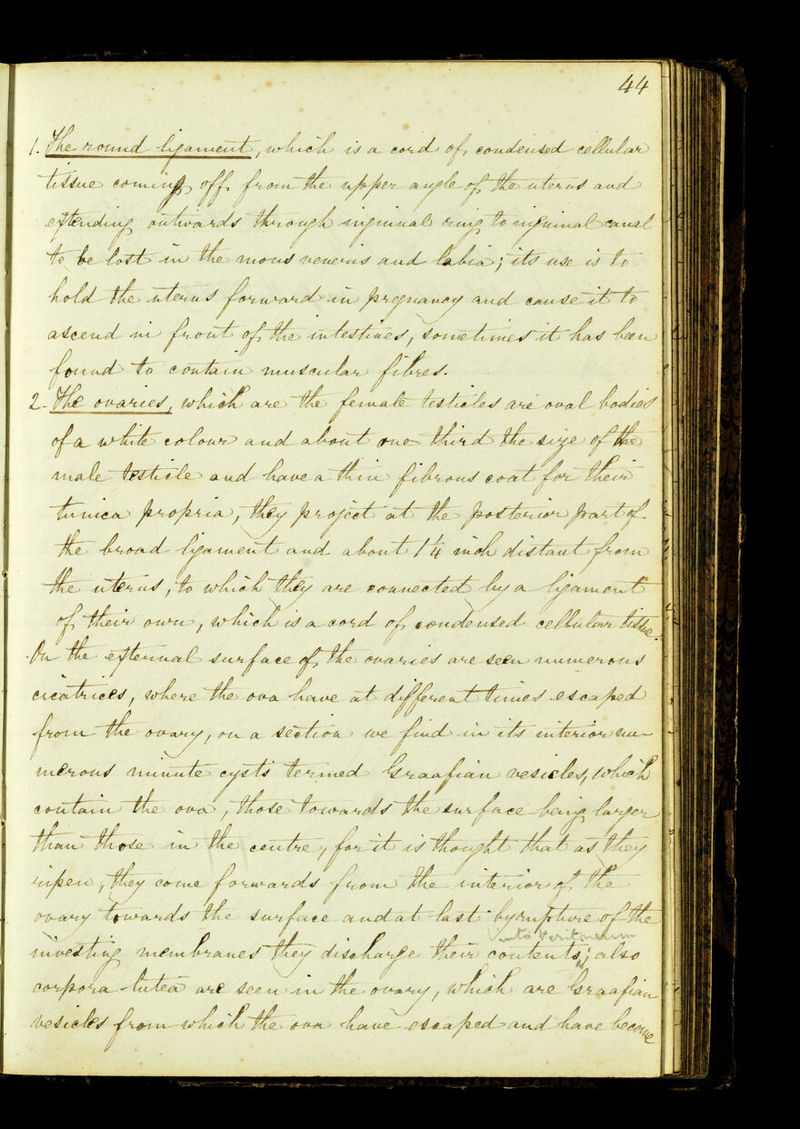 44
1. The round ligament, which is a cord of condensed cellular
tissue coming off from the upper angle of the uterus and
extending outwards through inguinal ring to inguinal canal
to be lost in the mons veneris and labia; its use is to
hold the uterus forward in pregnancy and cause it to
ascend in front of the intestines, sometimes it has been
found to contain muscular fibres.
2. The ovaries, which are the female testicles are oval bodies
of a white colour and about one third the size of the
male testicle and have a thin fibrous coat for their
tunica propria, they project at the posterior part of
the broad ligament and about 1 1/4 inch distant from
the uterus, to which they are connected by a ligament
of their own, which is a cord of condensed cellular tissue.
On the external surface of the ovaries are seen numerous
cicatrices, where the ova have at different times escaped
from the ovary, on a section we find in its interior nu-
merous minute cysts termed Graafian vesicles, which
contain the ova, those towards the surface being larger
than those in the centre, for it is thought that as they
ripen, they come forwards from the interior of the
ovary towards the surface and at last by rupture of the
into Peritoneum
investing membranes they discharge their contents; also
corpora lutea are seen in the ovary, which are Graafian
vesicles from which the ova have escaped and have become